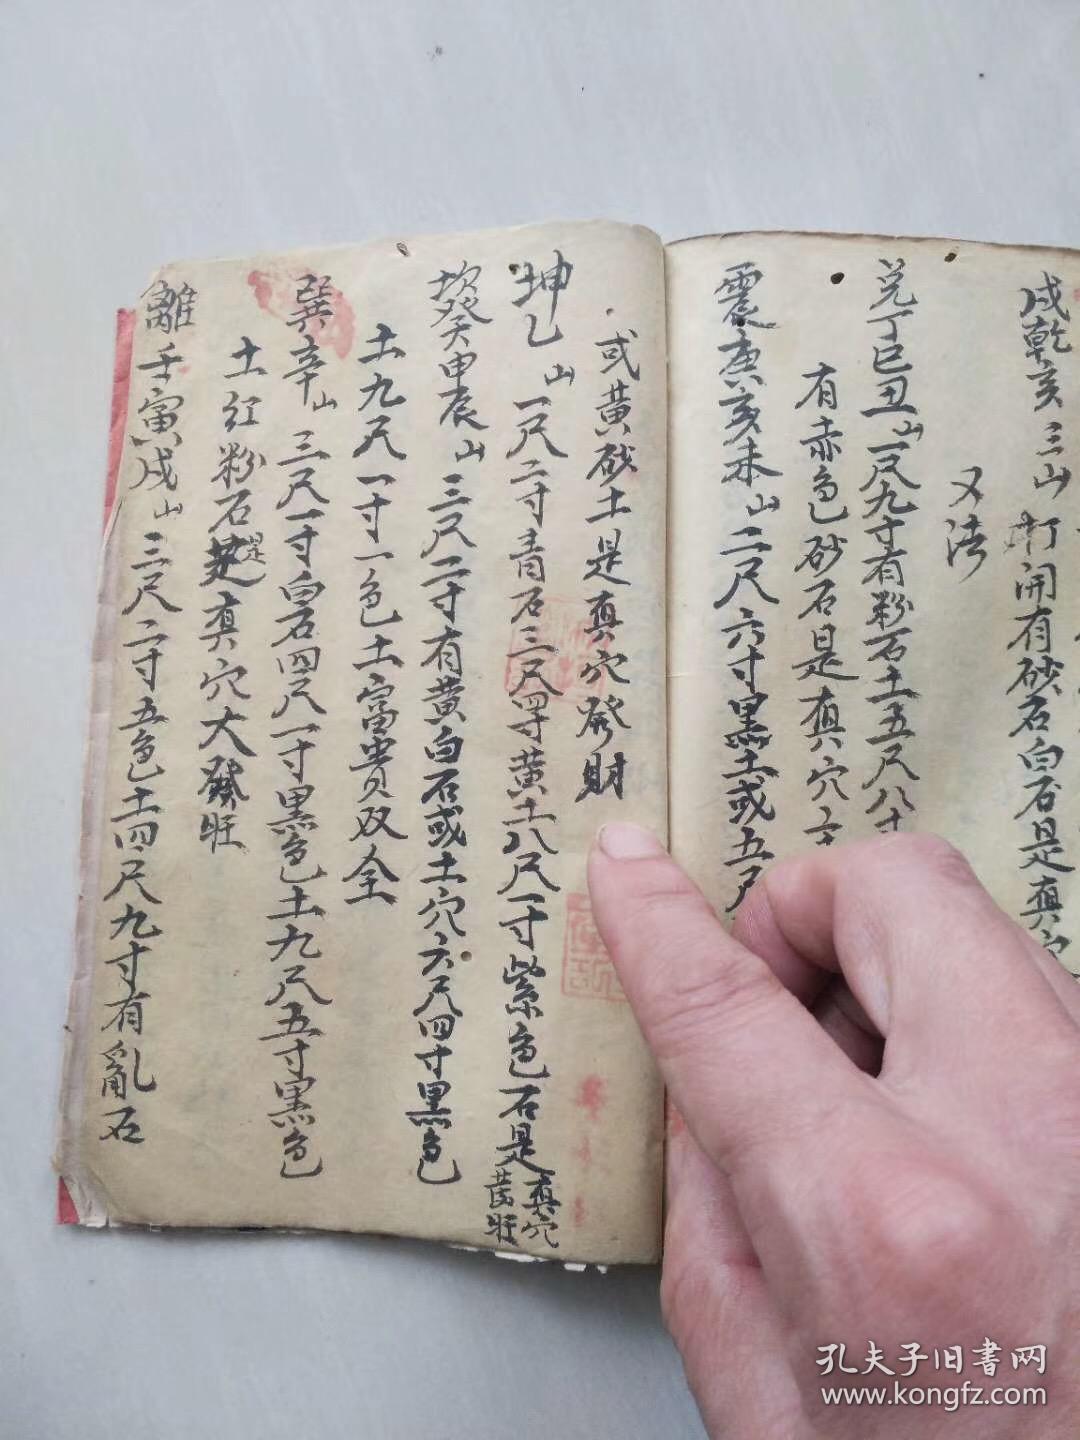 戌乾亥三山打開有砂石白石是真穴
又法
兑丁巳丑山一尺九寸有粉石土五尺八寸
有赤色砂石是真穴
震庚亥未山二尺六寸黑土或五尺
或黃砂土是真穴發財
坤乙山一尺二寸青石三尺四寸黃土八尺一寸紫色石是真穴
旺
坎癸申辰山三尺二寸有黄白石或土穴六尺四寸黑色
土九尺一寸一色土富貴双全
巽辛山三尺一寸白石四尺一寸黑色土九尺五寸黑色
土红粉石是真穴大發旺
離壬寅戌山三尺二寸五色土四尺九寸有亂石
孔夫子旧書网
www.kongfz.com